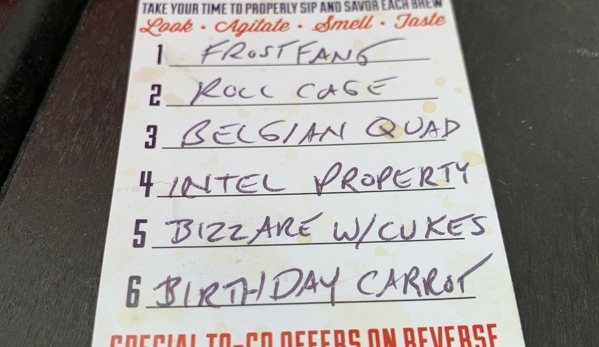 TAKE YOUR TIME TO PROPERLY SIP AND SAVOR EACH BREW
Look • Agitate • Smell • Taste
1 FROSTFANG
2 ROLL CAGE
3 BELGIAN QUAD
4 INTEL PROPERTY
5 BIZZARE W/CUKES
6 BIRTHDAY CARROT
SPECIAL TO-GO OFFERS ON REVERSE